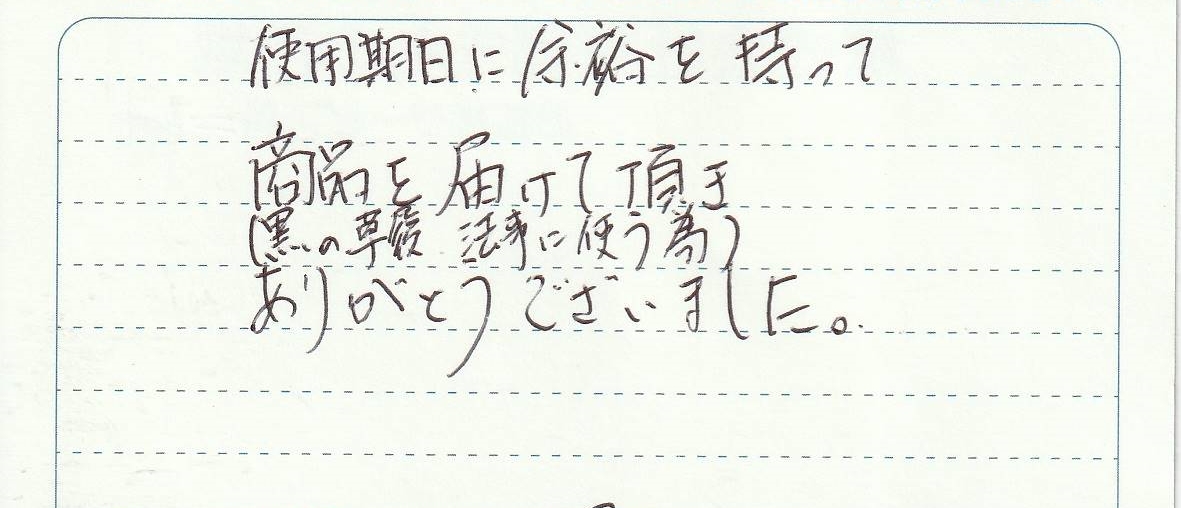 使用期日に余裕を持って
商品を届けて頂き
(黒の草履 法事に使う為)
ありがとうございました。